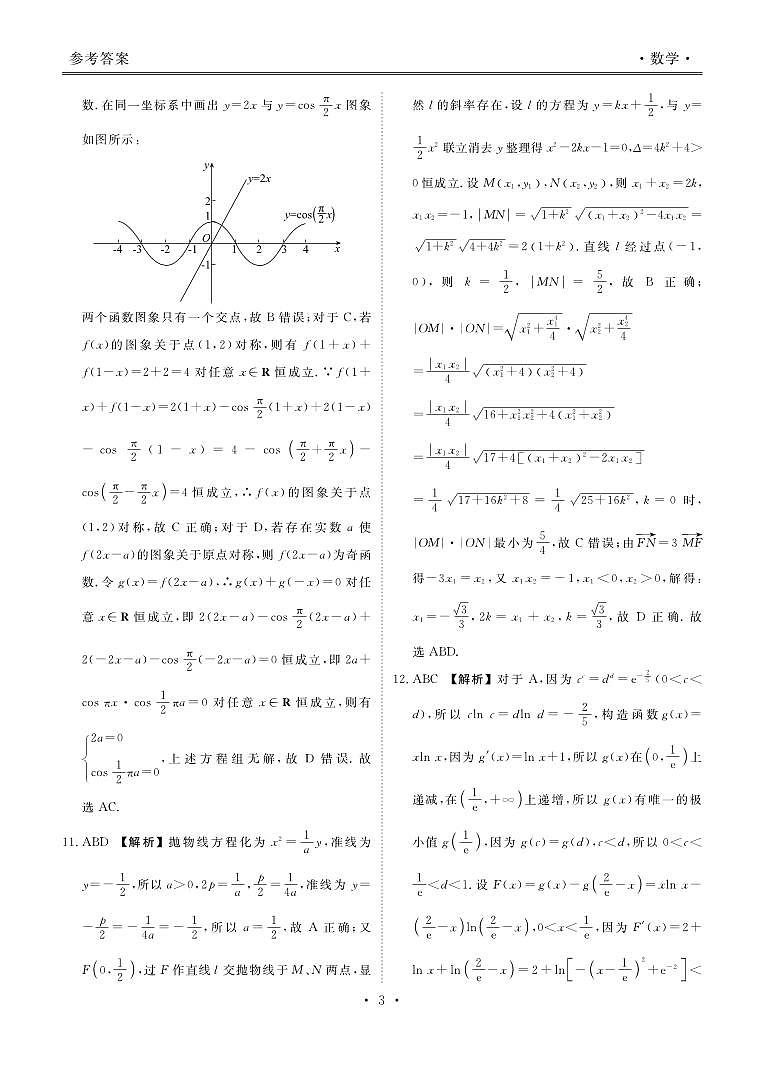 参考答案
·数学·
数.在同一坐标系中画出 y=2x 与 y=cos π/2 x 图象
如图所示:
y
y=2x
2
1
y=cos(π/2 x)
-4 -3 -2 -1 O 1 2 3 4 x
-1
两个函数图象只有一个交点,故 B 错误;对于 C,若
f(x)的图象关于点(1,2)对称,则有 f(1+x)+
f(1-x)=2+2=4 对任意 x∈R 恒成立.∵f(1+
x)+f(1-x)=2(1+x)-cos π/2 (1+x)+2(1-x)
- cos π/2 (1-x)=4-cos(π/2+π/2 x)-
cos(π/2-π/2 x)=4 恒成立,∴f(x)的图象关于点
(1,2)对称,故 C 正确;对于 D,若存在实数 a 使
f(2x-a)的图象关于原点对称,则 f(2x-a)为奇函
数.令 g(x)=f(2x-a),∴g(x)+g(-x)=0 对任
意 x∈R 恒成立,即 2(2x-a)-cos π/2 (2x-a)+
2(-2x-a)-cos π/2 (-2x-a)=0 恒成立,即 2a+
cos πx·cos 1/2 πa=0 对任意 x∈R 恒成立,则有
{2a=0
cos 1/2 πa=0
,上述方程组无解,故 D 错误.故
选 AC.
11. ABD 【解析】抛物线方程化为 x²=1/a y,准线为
y=-1/2,所以 a>0,2p=1/a,p/2=1/4a,准线为 y=
-p/2=-1/4a=-1/2,所以 a=1/2,故 A 正确;又
F(0,1/2),过 F 作直线 l 交抛物线于 M、N 两点,显
然 l 的斜率存在,设 l 的方程为 y=kx+1/2,与 y=
1/2 x² 联立消去 y 整理得 x²-2kx-1=0,Δ=4k²+4>
0 恒成立.设 M(x₁,y₁),N(x₂,y₂),则 x₁+x₂=2k,
x₁x₂=-1,|MN|=√(1+k²) √((x₁+x₂)²-4x₁x₂)=
√(1+k²) √(4+4k²)=2(1+k²).直线 l 经过点(-1,
0),则 k=1/2,|MN|=5/2,故 B 正确;
|OM|·|ON|=√(x₁²+x₁⁴/4)·√(x₂²+x₂⁴/4)
=|x₁x₂|/4 √((x₁²+4)(x₂²+4))
=|x₁x₂|/4 √(16+x₁²x₂²+4(x₁²+x₂²))
=|x₁x₂|/4 √(17+4[(x₁+x₂)²-2x₁x₂])
=1/4 √(17+16k²+8)=1/4 √(25+16k²),k=0 时,
|OM|·|ON|最小为 5/4,故 C 错误;由 F͞N⃗=3 M͞F⃗
得-3x₁=x₂,又 x₁x₂=-1,x₁<0,x₂>0,解得:
x₁=-√3/3,2k=x₁+x₂,k=√3/3,故 D 正确.故
选 ABD.
12. ABC 【解析】对于 A,因为 cᶜ=dᵈ=e^(-2/5)(0<c<
d),所以 cln c=dln d=-2/5,构造函数 g(x)=
xln x,因为 g′(x)=ln x+1,所以 g(x)在(0,1/e)上
递减,在(1/e,+∞)上递增,所以 g(x)有唯一的极
小值 g(1/e),因为 g(c)=g(d),c<d,所以 0<c<
1/e<d<1.设 F(x)=g(x)-g(2/e-x)=xln x-
(2/e-x)ln(2/e-x),0<x<1/e,因为 F′(x)=2+
ln x+ln(2/e-x)=2+ln[-(x-1/e)²+e⁻²]<
· 3 ·